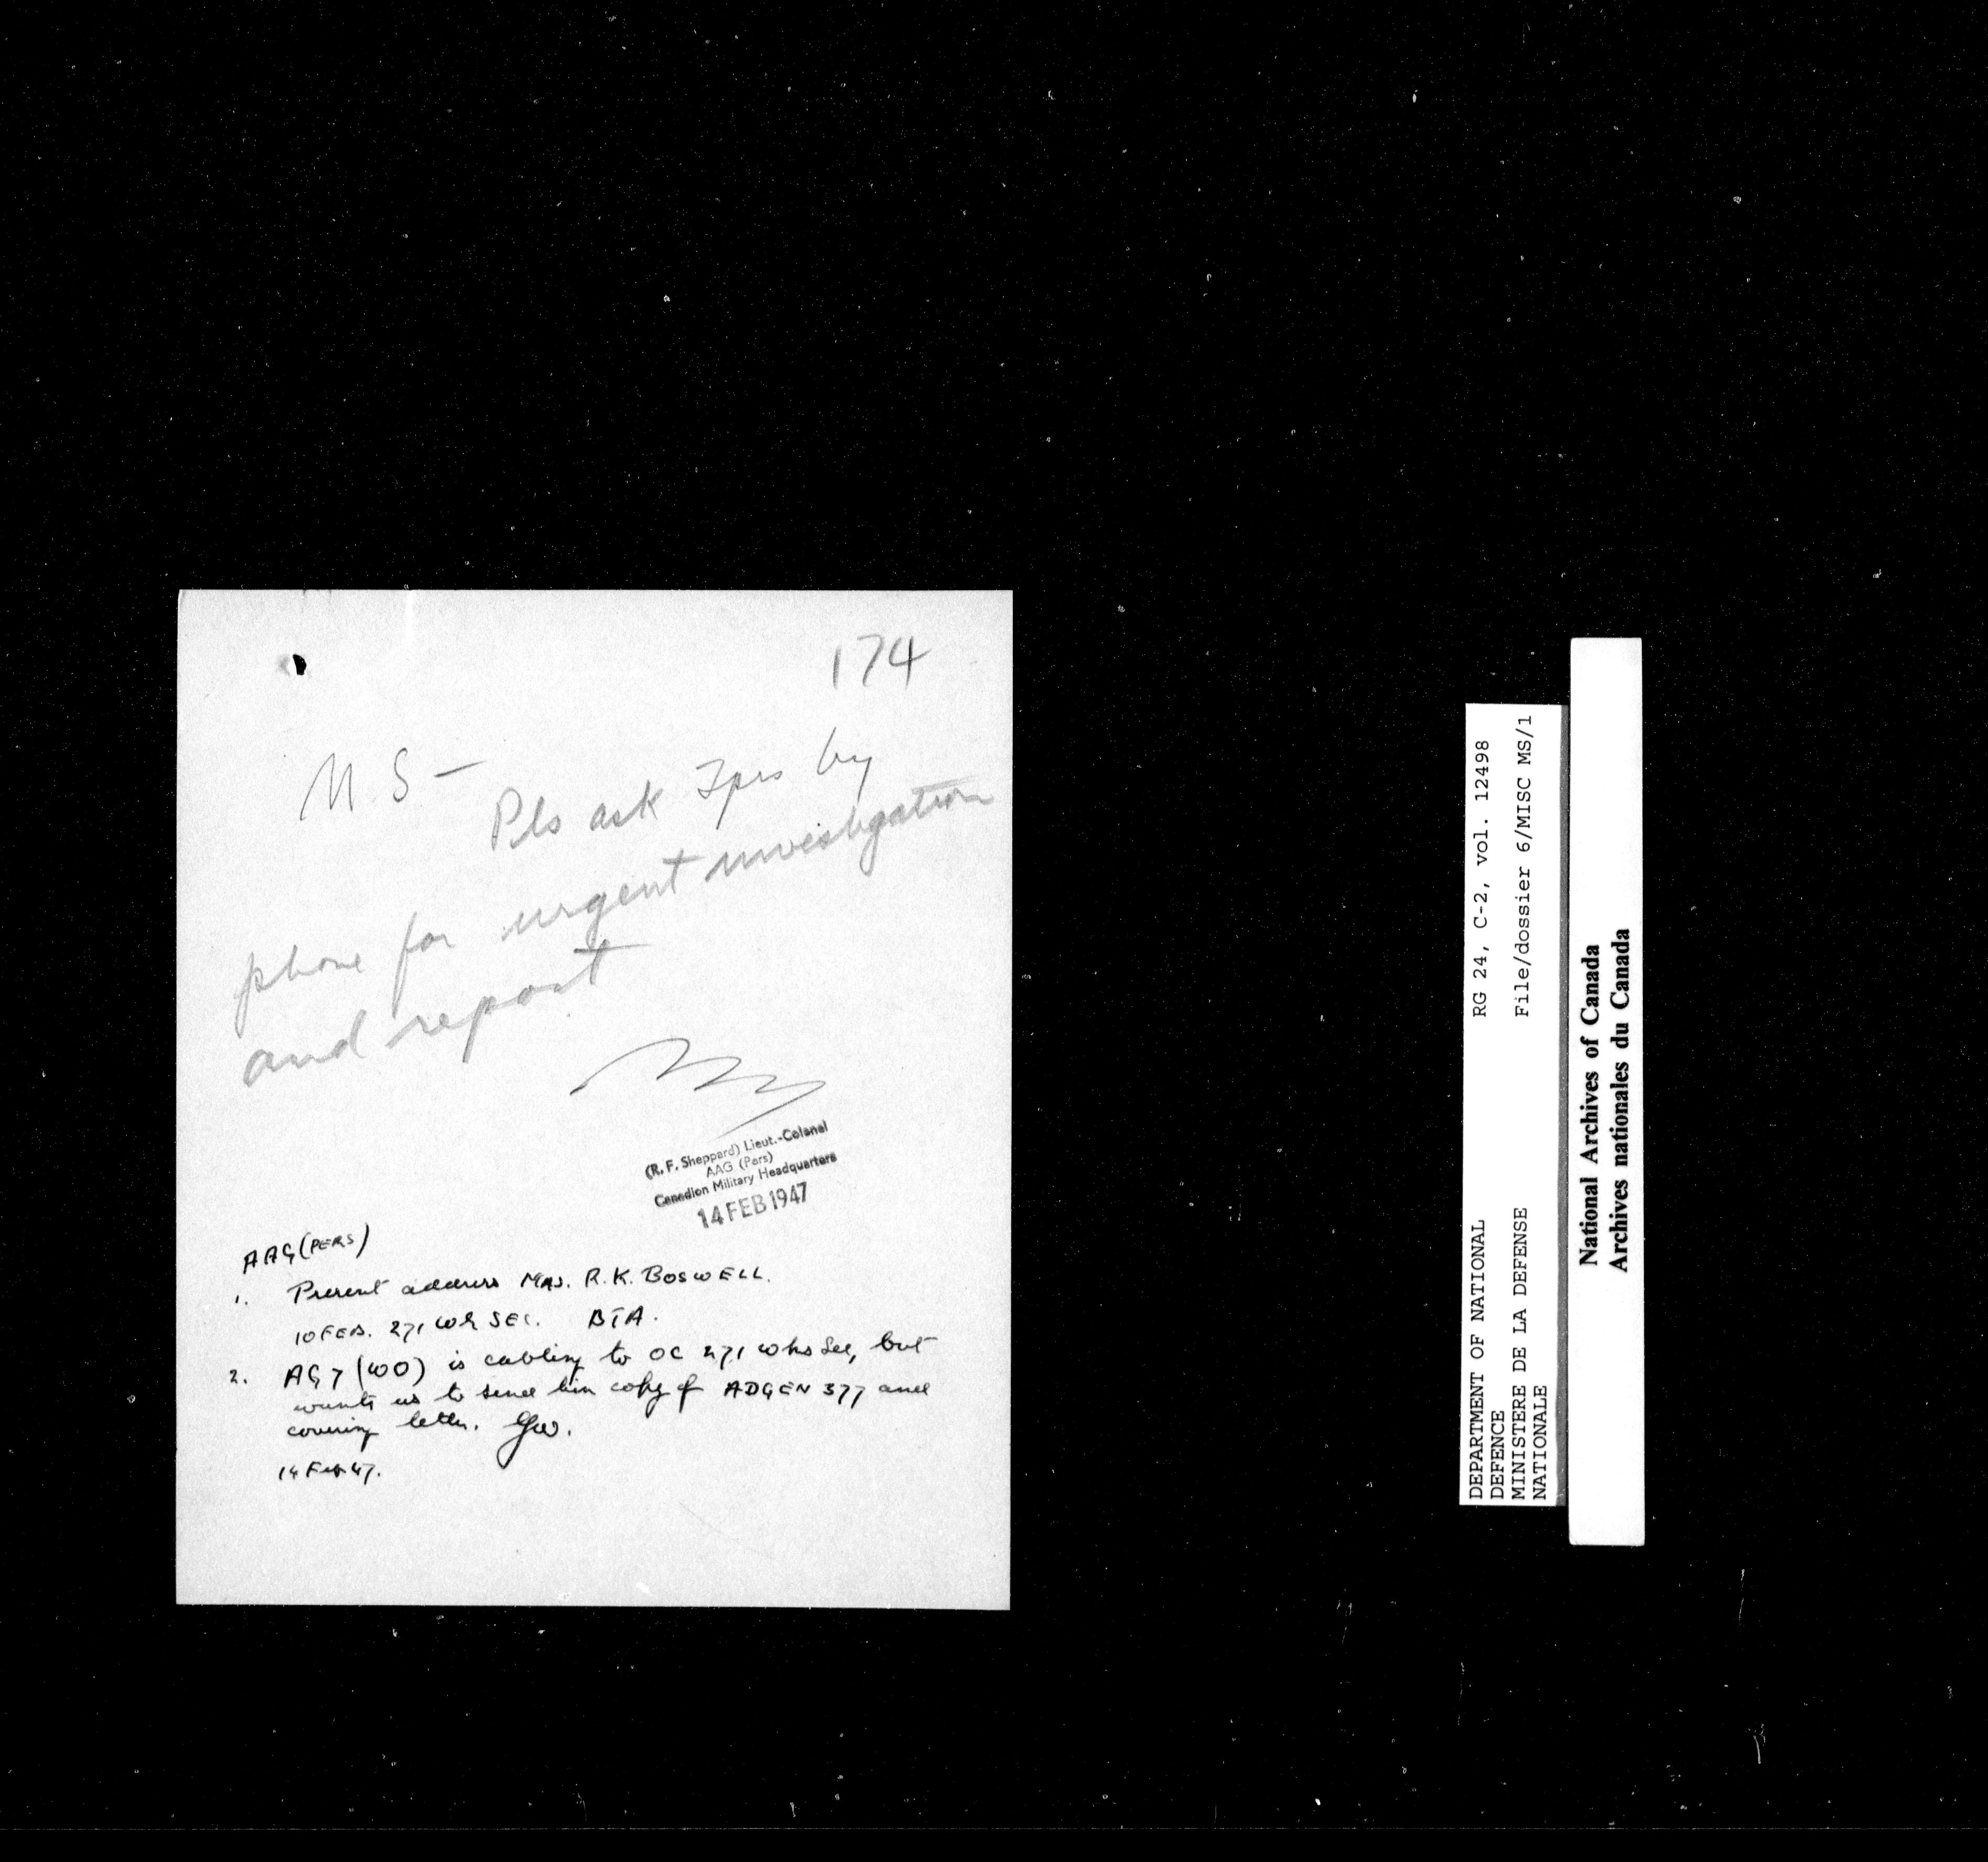 174
M S –
Pls ask by
phone for urgent investigation
and report
(R. F. Sheppard) Lieut.-Colonel
AAG (Pers)
Canadian Military Headquarters
14 FEB 1947
AAG (PERS)
1. Present address MAJ. R.K. BOSWELL.
10 FEB. 271 SEC. BTA.
2. AG 7 (WO) is cabling to OC 271 but
wants us to send him copy of ADGEN 377 and
covering letter.
14 Feb 47.
DEPARTMENT OF NATIONAL
DEFENCE
MINISTERE DE LA DEFENSE
NATIONALE
RG 24, C-2, vol. 12498
File/dossier 6/MISC MS/1
National Archives of Canada
Archives nationales du Canada